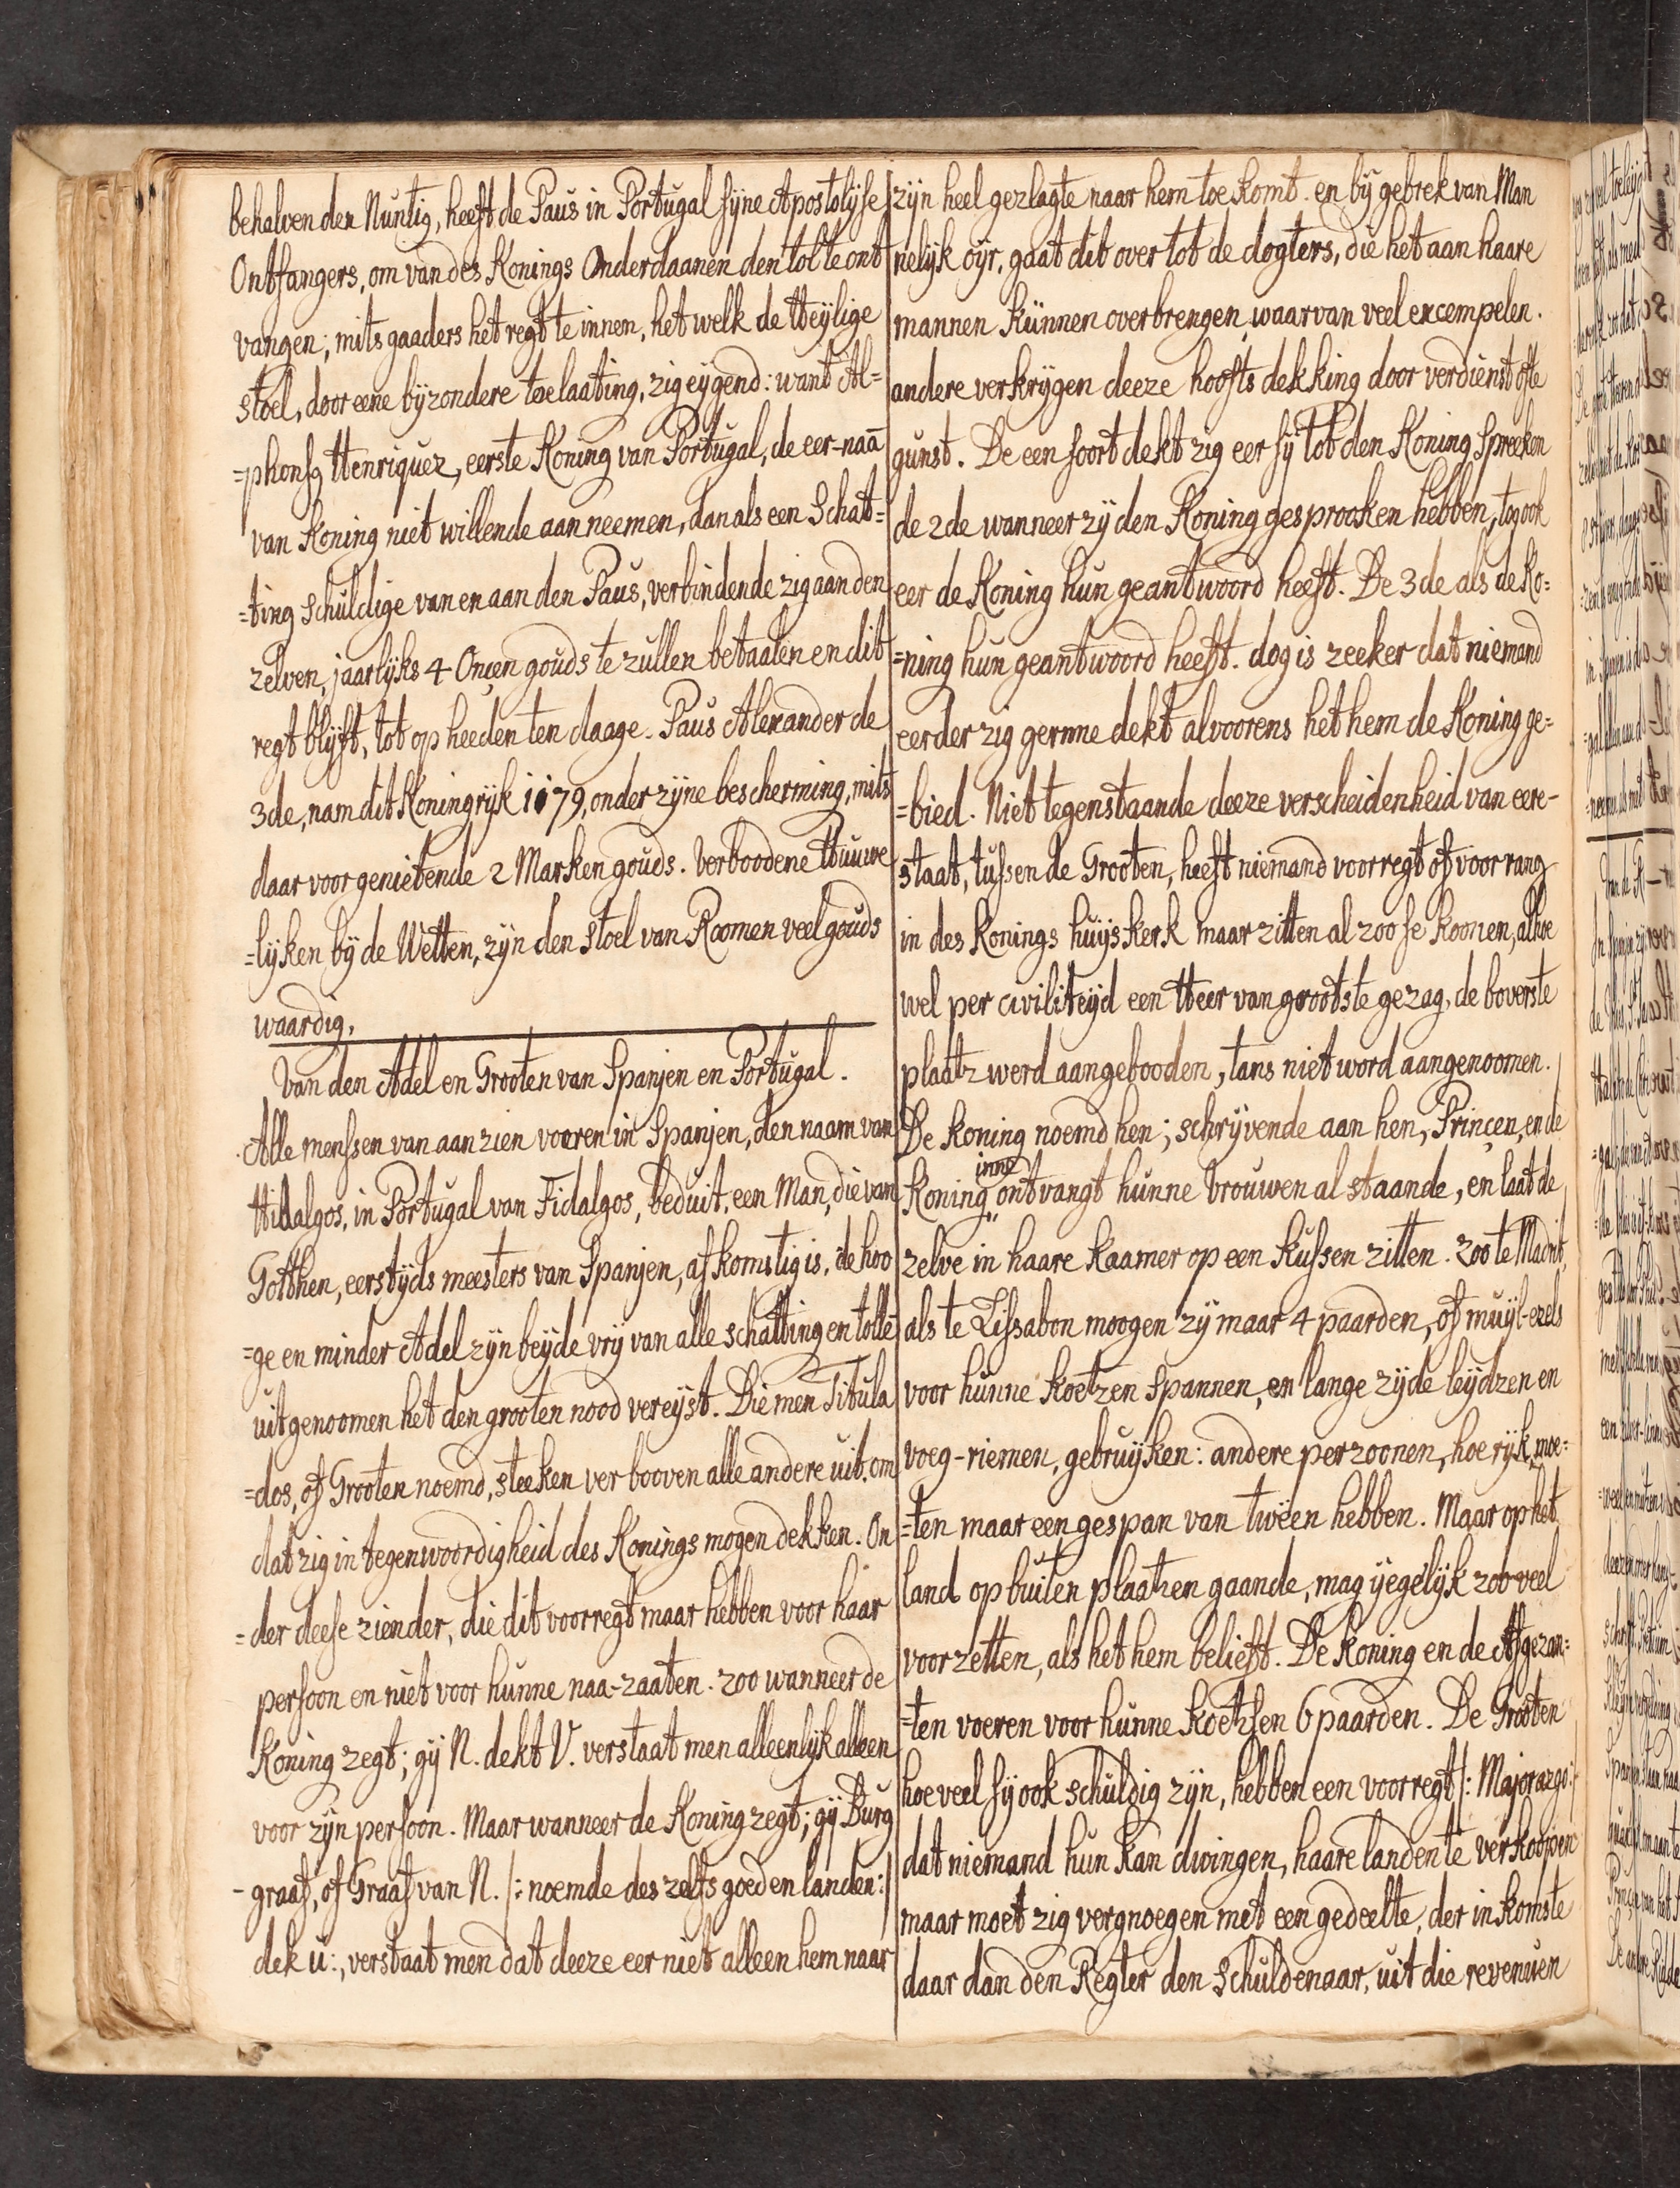 behalven den Nuntig, heeft de Paus in Portugal sijne Apostolijse
Ontfangers, om van des Konings Onderdaanen den tol te ont
vangen; mitsgaaders het regt te innen, het welk de Heijlige
stoel, door eene bijzondere toelaating, zig eijgend: want Al=
=phonsg Henriquez, eerste Koning van Portugal, de eer-naā
van Koning niet willende aanneemen, dan als een Schat=
=ting schuldige van en aan den Paus, verbindende zig aan den
zelven, jaarlijks 4 Onçen gouds te zullen betaalen en dit
regt blijft, tot op heeden ten daage. Paus Alexander de
3de, nam dit Koningrijk 1179, onder zijne bescherming, mits
daar voor genietende 2 Marken gouds. Verboodene Huuwe
=lijken bij de Wetten, zijn den stoel van Roomen veel gouds
waardig.
Van den Adel en Grooten van Spanjen en Portugal.
Alle menssen van aanzien voeren in Spanjen, den naam van
Hidalgos, in Portugal van Fidalgos, beduit, een Man, die van
Gotthen, eerstijds meesters van Spanjen, afkomstig is, de hoo
=ge en minder Adel zijn beijde vrij van alle schatting en tollē
uitgenoomen het den grooten nood vereijst. Die men Titula
=dos, of Grooten noemd, steeken ver booven alle andere uit, om
dat zig in tegenwoordigheid des Konings mogen dekken. On
=der deese zien der, die dit voorregt maar hebben voor haar
persoon en niet voor hunne naa-zaaten. zoo wanneer de
Koning zegt; gij N. dekt V. verstaat men alleenlijk alleen
voor zijn persoon. Maar wanneer de Koning zegt; gij Burg
-graaf, of Graaf van N. /: noemde des zelfs goed en landen:/
dek ú:, verstaat men dat deeze eer niet alleen hem naar
zijn heel gezlagte naar hem toe komt. en bij gebrek van Man
nelijk oijr, gaat dit over tot de dogters, die het aan haare
mannen kunnen overbrengen, waarvan veel excempelen.
andere verkrijgen deeze hoofts dekking door verdienst ofte
gunst. De een soort dekt zig eer sij tot den Koning spreeken
de 2de wanneer zij den Koning gesprooken hebben, tog ook
eer de Koning hun geantwoord heeft. De 3de als de Ko=
=ning hun geantwoord heeft. dog is zeeker dat niemand
eerder zig germne dekt alvoorens het hem de Koning ge=
=bied. Niet tegenstaande deeze verscheidenheid van eere-
staat, tussen de Grooten, heeft niemand voorregt of voorrang
in des Konings huijskerk maar zitten al zoo se koomen, alhoe
wel per civiliteijd een Heer van grootste gezag, de boverste
plaatz werd aangebooden, tans niet word aangenoomen.
De Koning noemd hen; schrijvende aan hen, Prinçen, en de
inne
Koning,, ontvangt hunne Vrouwen al staande, en laat de
zelve in haare Kaamer op een Kussen zitten. Zoo te Madrit,
als te Lissabon moogen zij maar 4 paarden, of muijl-ezels
voor hunne Koetzen Spannen, en lange zijde leijdzen en
voeg-riemen, gebruijken: andere perzoonen, hoe rijk, moe=
=ten maar een gespan van tweën hebben. Maar op het
land op buiten plaatzen gaande, mag ijegelijk zoo veel
voorzetten, als het hem belieft. De Koning en de Afgezan=
=ten voeren voor hunne Koetssen 6 paarden. De Grooten
hoe veel sij ook schuldig zijn, hebben een voorregt /: Majorazgo:/
dat niemand hun kan dwingen, haare landen te verkoopen
maar moet zig vergnoegen met een gedeelte, der inkomste
daar dan den Regter den Schuldenaar, uit die revenuen